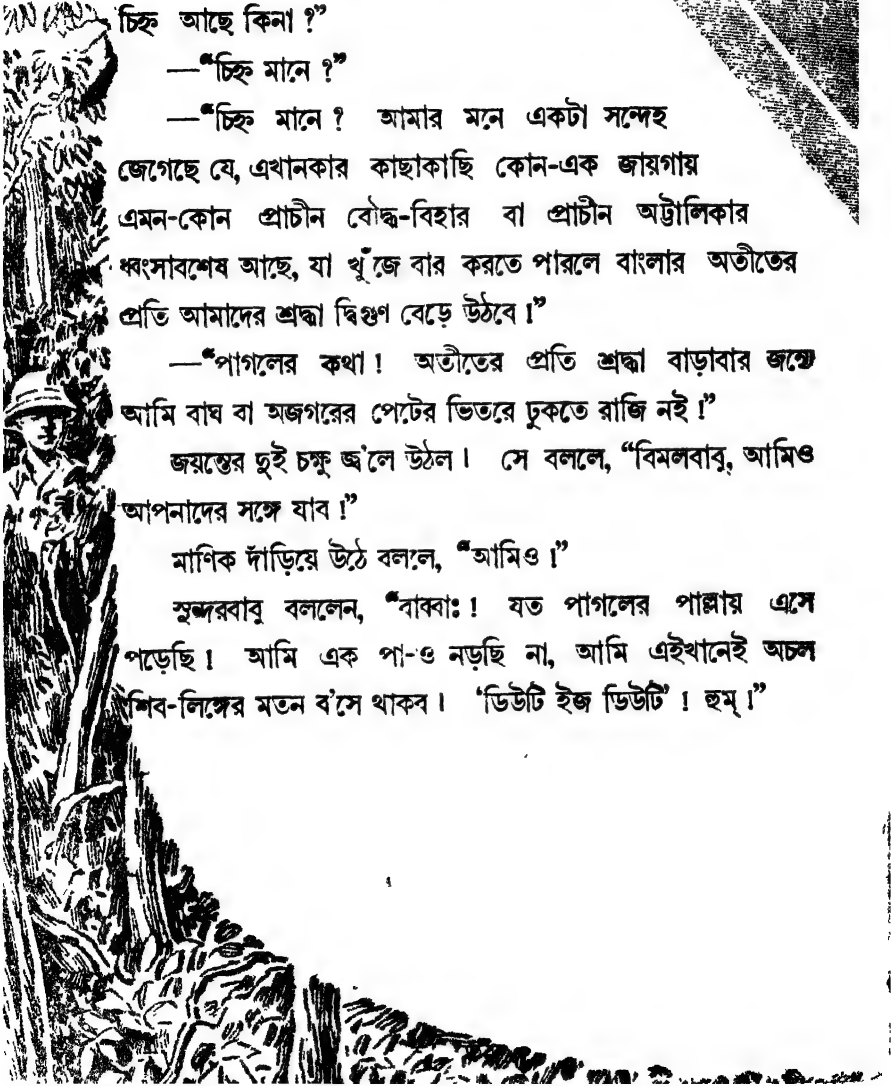 চিহ্ন আছে কিনা ?”
—“চিহ্ন মানে ?”
—“চিহ্ন মানে ? আমার মনে একটা সন্দেহ
জেগেছে যে, এখানকার কাছাকাছি কোন-এক জায়গায়
এমন-কোন প্রাচীন বৌদ্ধ-বিহার বা প্রাচীন অট্টালিকার
ধ্বংসাবশেষ আছে, যা খুঁজে বার করতে পারলে বাংলার অতীতের
প্রতি আমাদের শ্রদ্ধা দ্বিগুণ বেড়ে উঠবে।”
—“পাগলের কথা! অতীতের প্রতি শ্রদ্ধা বাড়াবার জন্যে
আমি বাঘ বা অজগরের পেটের ভিতরে ঢুকতে রাজি নই!”
জয়ন্তের দুই চক্ষু জ্ব’লে উঠল। সে বললে, “বিমলবাবু, আমিও
আপনাদের সঙ্গে যাব!”
মাণিক দাঁড়িয়ে উঠে বললে, “আমিও।”
সুন্দরবাবু বললেন, “বাব্বাঃ! যত পাগলের পাল্লায় এসে
পড়েছি! আমি এক পা-ও নড়ছি না, আমি এইখানেই অচল
শিব-লিঙ্গের মতন ব’সে থাকব। ‘ডিউটি ইজ ডিউটি’! হুম্।”